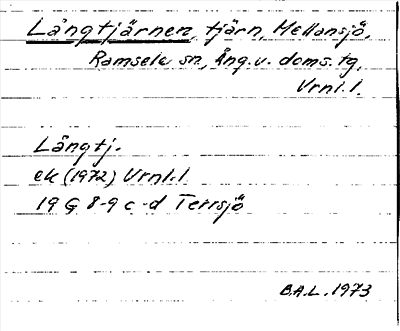 Långtjärnen, tjärn, Mellansjö,
Ramsele sn, Ång.v. doms. tg,
Vrnl.l.
Långtj.
ek (1972) Vrnl.l
19 G 8-9 c-d Terrsjö
B.A.L. 1973